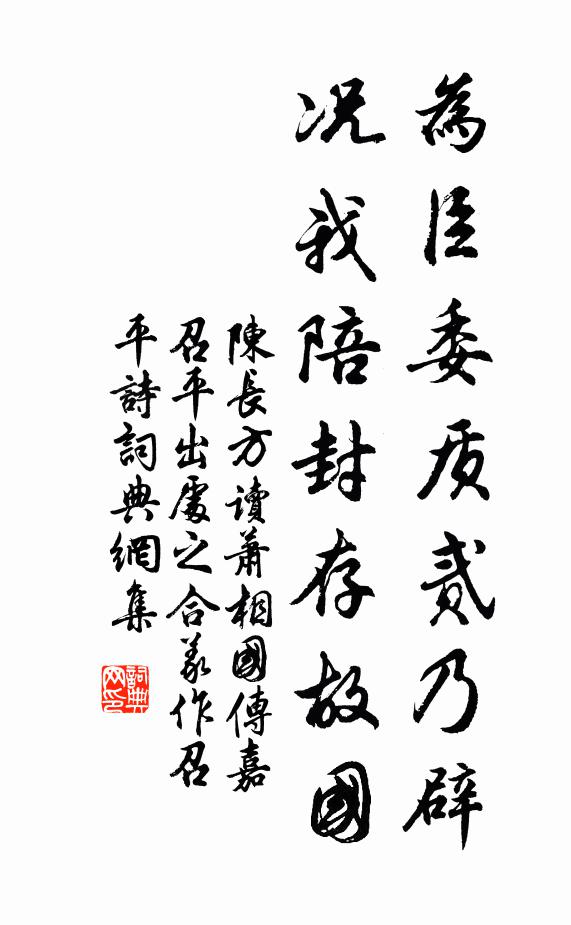 為臣委质貳乃辟
况我陪封存故國
陳長方讀蕭相國傳嘉
召平出處之合義作召
平詩詞典網集
詞典
网印